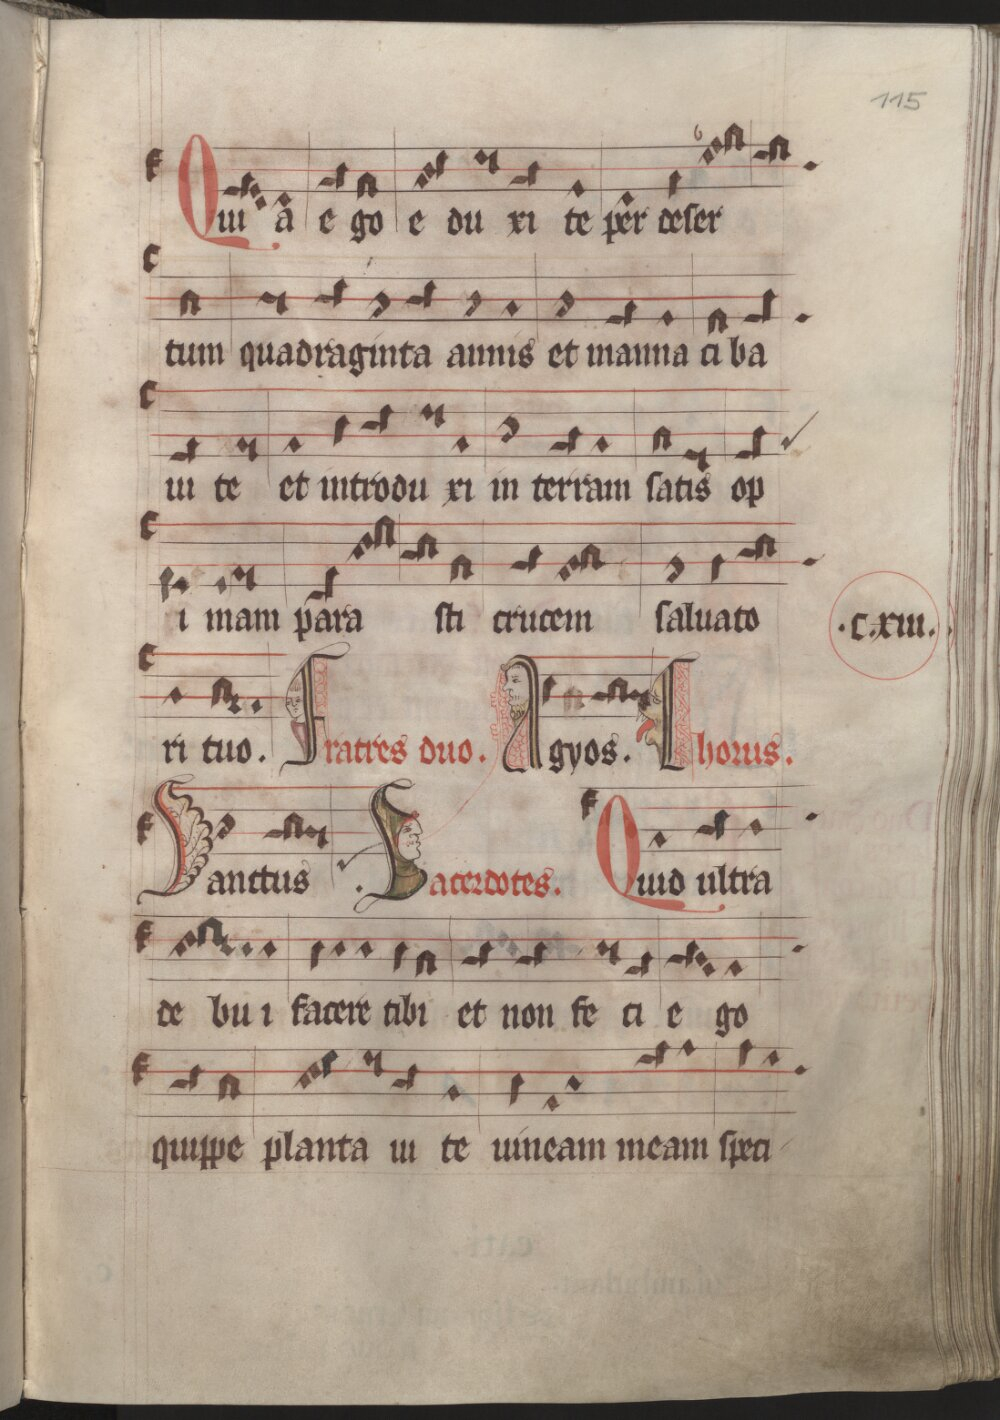 115
Qui a e go e du xi te per deser
tum quadraginta annis et manna ci ba
ui te et introdu xi in terram satis op
i mam para sti crucem saluato
.C.XIII.
ri tuo. Fratres duo. Agyos. Chorus.
Sanctus. Sacerdotes. Quid ultra
de bu i facere tibi et non fe ci e go
quippe planta ui te uineam meam speci